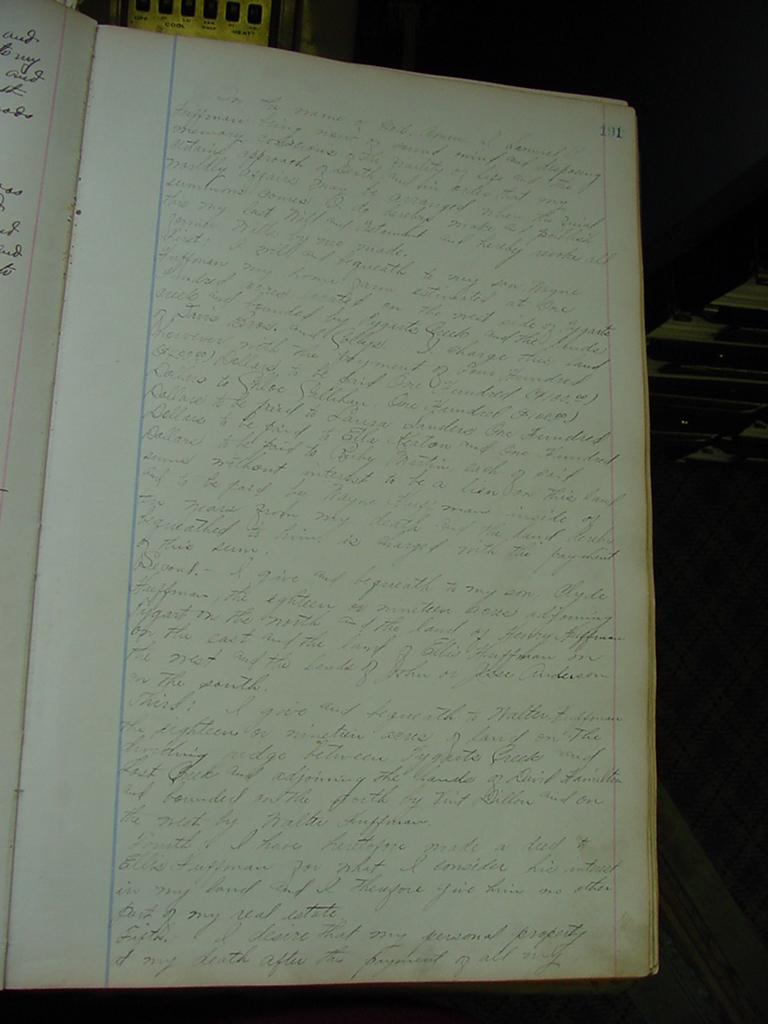 and
to my
and
and
to
191
In the name of God, Amen, I Samuel
Huffman being now of sound mind and disposing
memory conscious of the frailty of life and the
certain approach of death and in order that my
worldly affairs may be arranged when the final
summons comes I do hereby make and publish
this my last Will and Testament and hereby revoke all
former Wills by me made.
First: I will and bequeath to my son Wayne
Huffman my home farm estimated at One
Hundred acres located on the west side of Tygarts
Creek and bounded by Tygarts Creek and the lands
of Davis Bros. and I charge this land
however with the payment of Four Hundred
($400.00) Dollars, to be paid One Hundred ($100.00)
Dollars to Chloe Callihan, One Hundred ($100.00)
Dollars to be paid to Laura Sanders One Hundred
Dollars to be paid to Ella Keaton and One Hundred
Dollars to be paid to Ruby Martin each of said
sums without interest to be a lien on this land
and to be paid by Wayne Huffman inside of
years from my death and the land hereby
bequeathed to him is charged with the payment
of this sum.
Second.- I give and bequeath to my son Clyde
Huffman, the eighteen or nineteen acres adjoining
Tygart on the north and the land of Henry Huffman
on the east and the land of Ellis Huffman on
the west and the lands of John or Jesse Anderson
on the south.
Third: I give and bequeath to Walter Huffman
the eighteen or nineteen acres of land on The
dividing ridge between Tygarts Creek and
Lost Creek and adjoining the lands of David Hamilton
and bounded on the North by Tint Dillon and on
the west by Walter Huffman.
Fourth. I have heretofore made a deed to
Ellis Huffman for what I consider his interest
in my land and I therefore give him no other
part of my real estate.
Fifth.- I desire that my personal property
at my death after the payment of all my